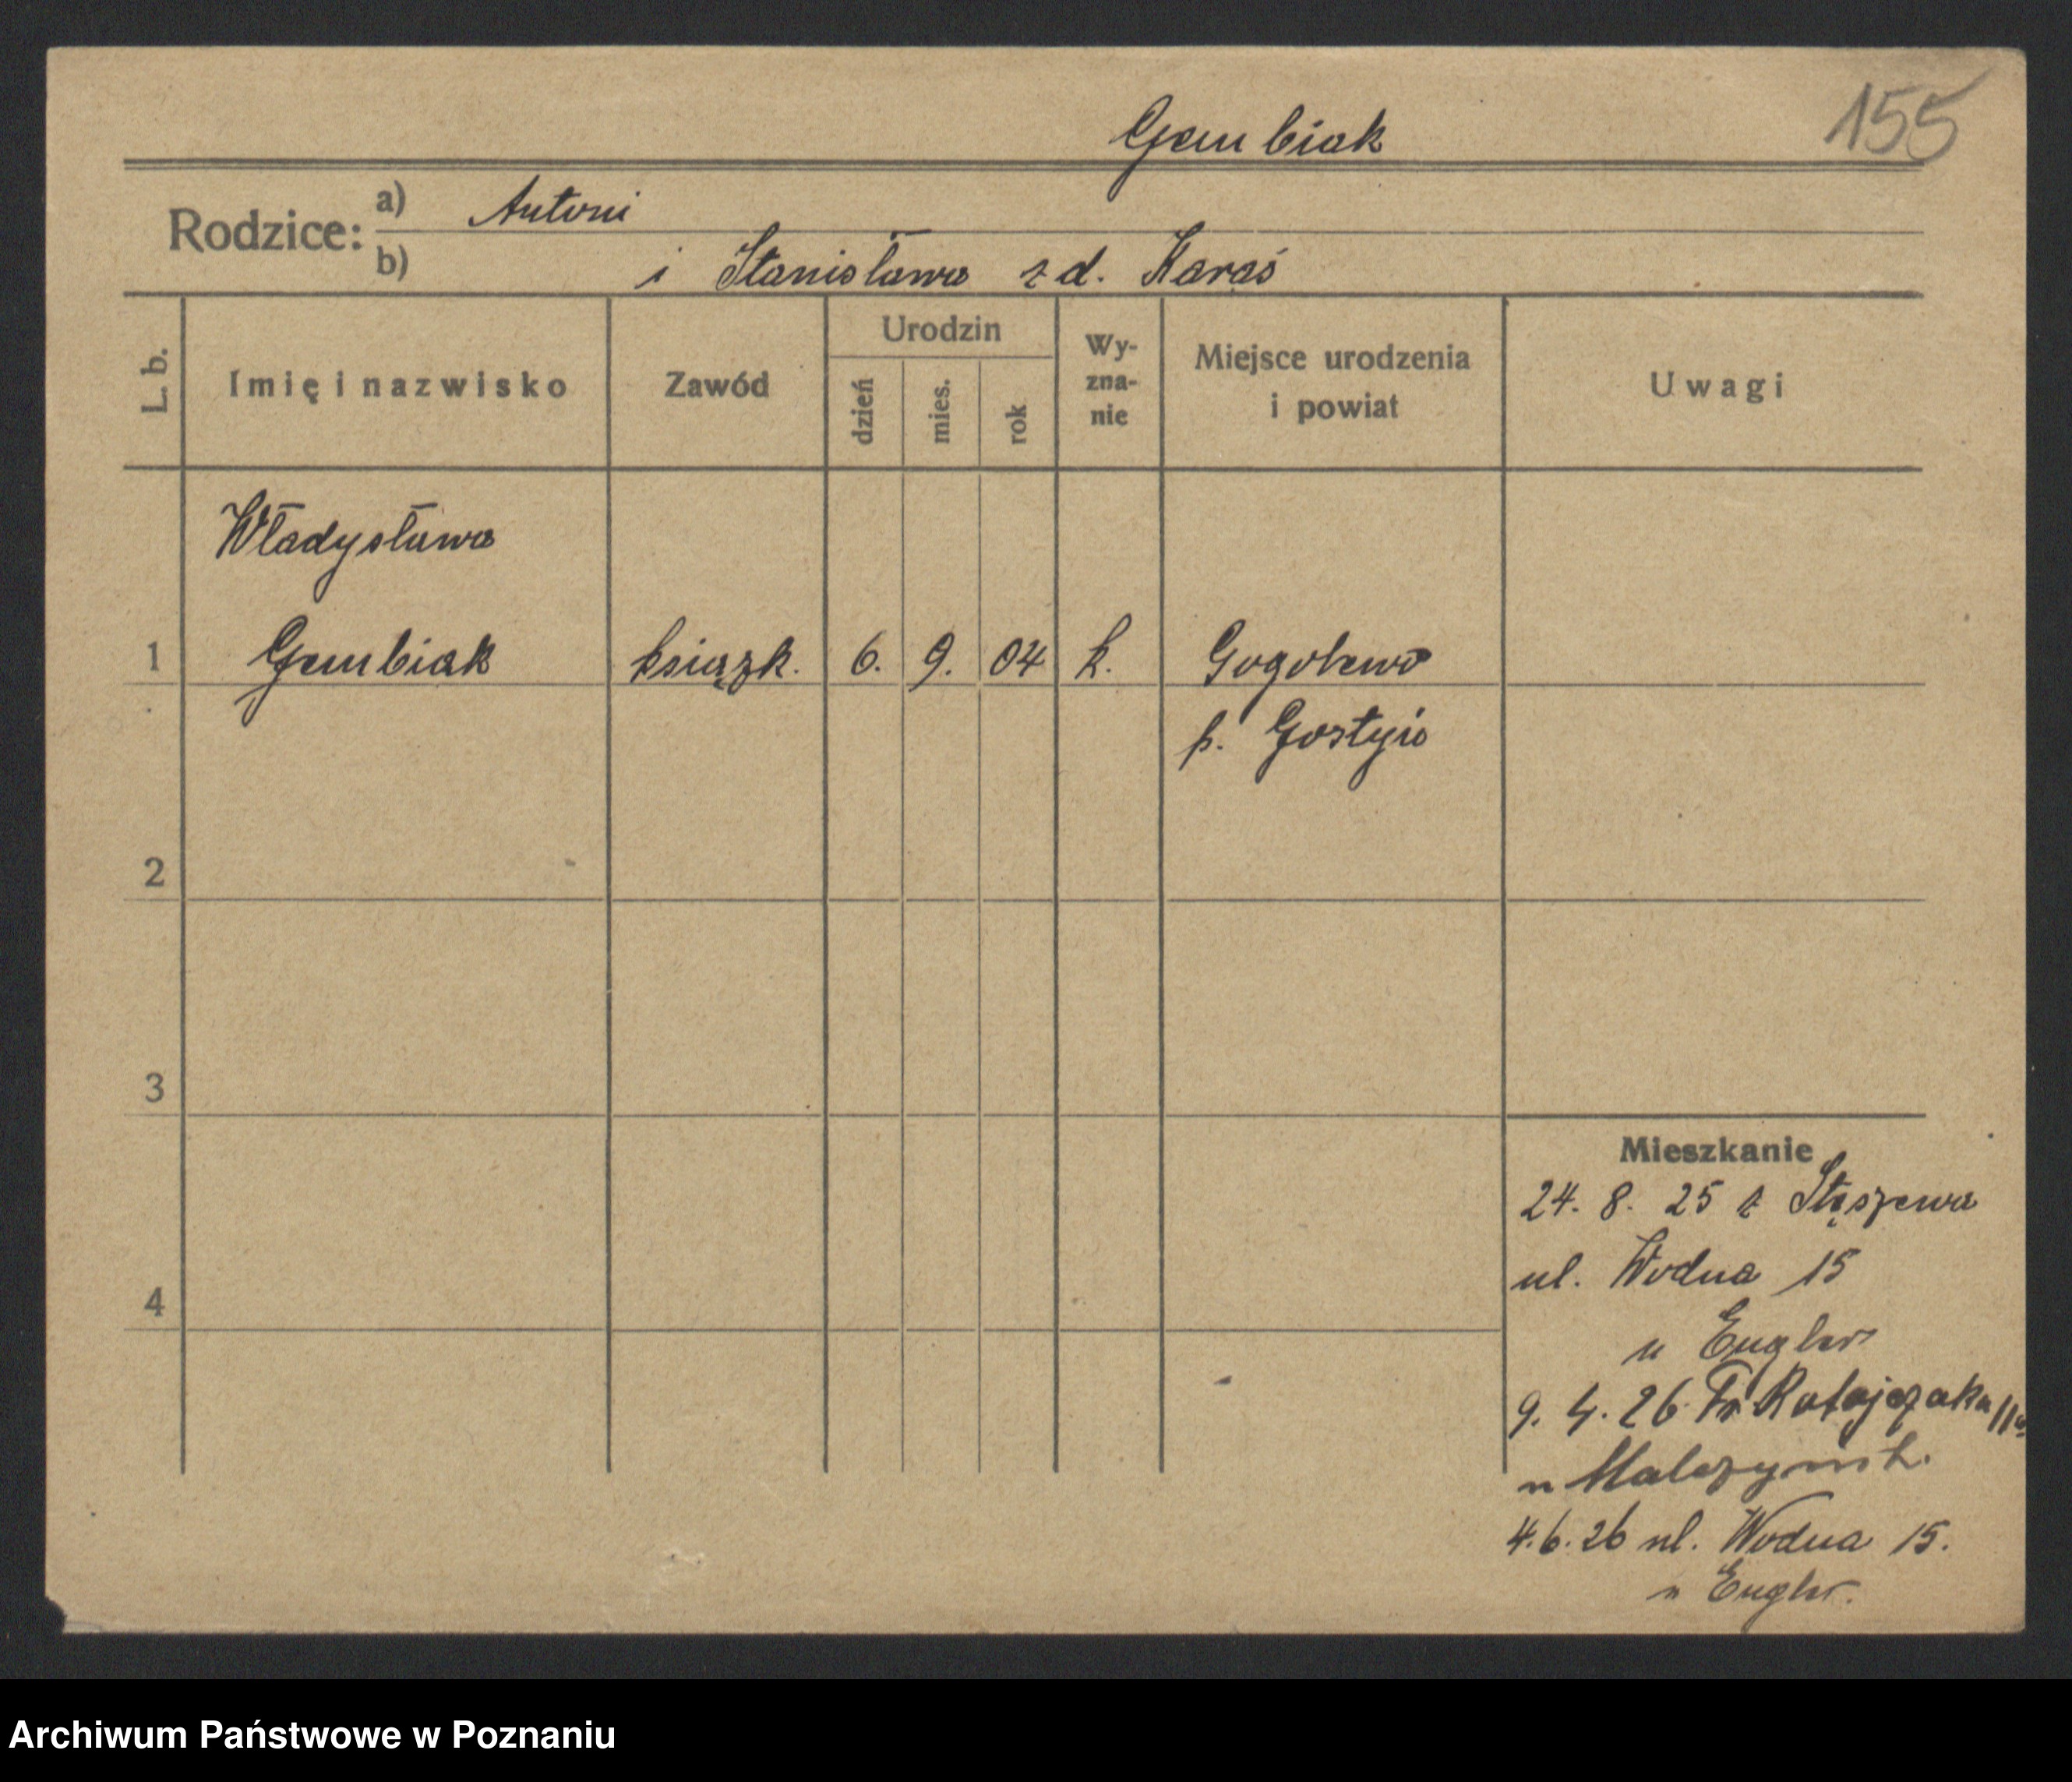 155
Gembiak
Rodzice: a) Antoni
b) i Stanisława z d. Karaś
L. b.
Imię i nazwisko
Zawód
Urodzin
dzień
mies.
rok
Wy-
zna-
nie
Miejsce urodzenia
i powiat
Uwagi
Władysława
1 Gembiak książk. 6. 9. 04 k. Gogolewo
p. Gostyń
2
3
4
Mieszkanie
24. 8. 25 z Stęszewa
ul. Wodna 15
u Engler
9. 4. 26 Fr Ratajczaka
u
4.6.26 ul. Wodna 15.
u Engler.
Archiwum Państwowe w Poznaniu